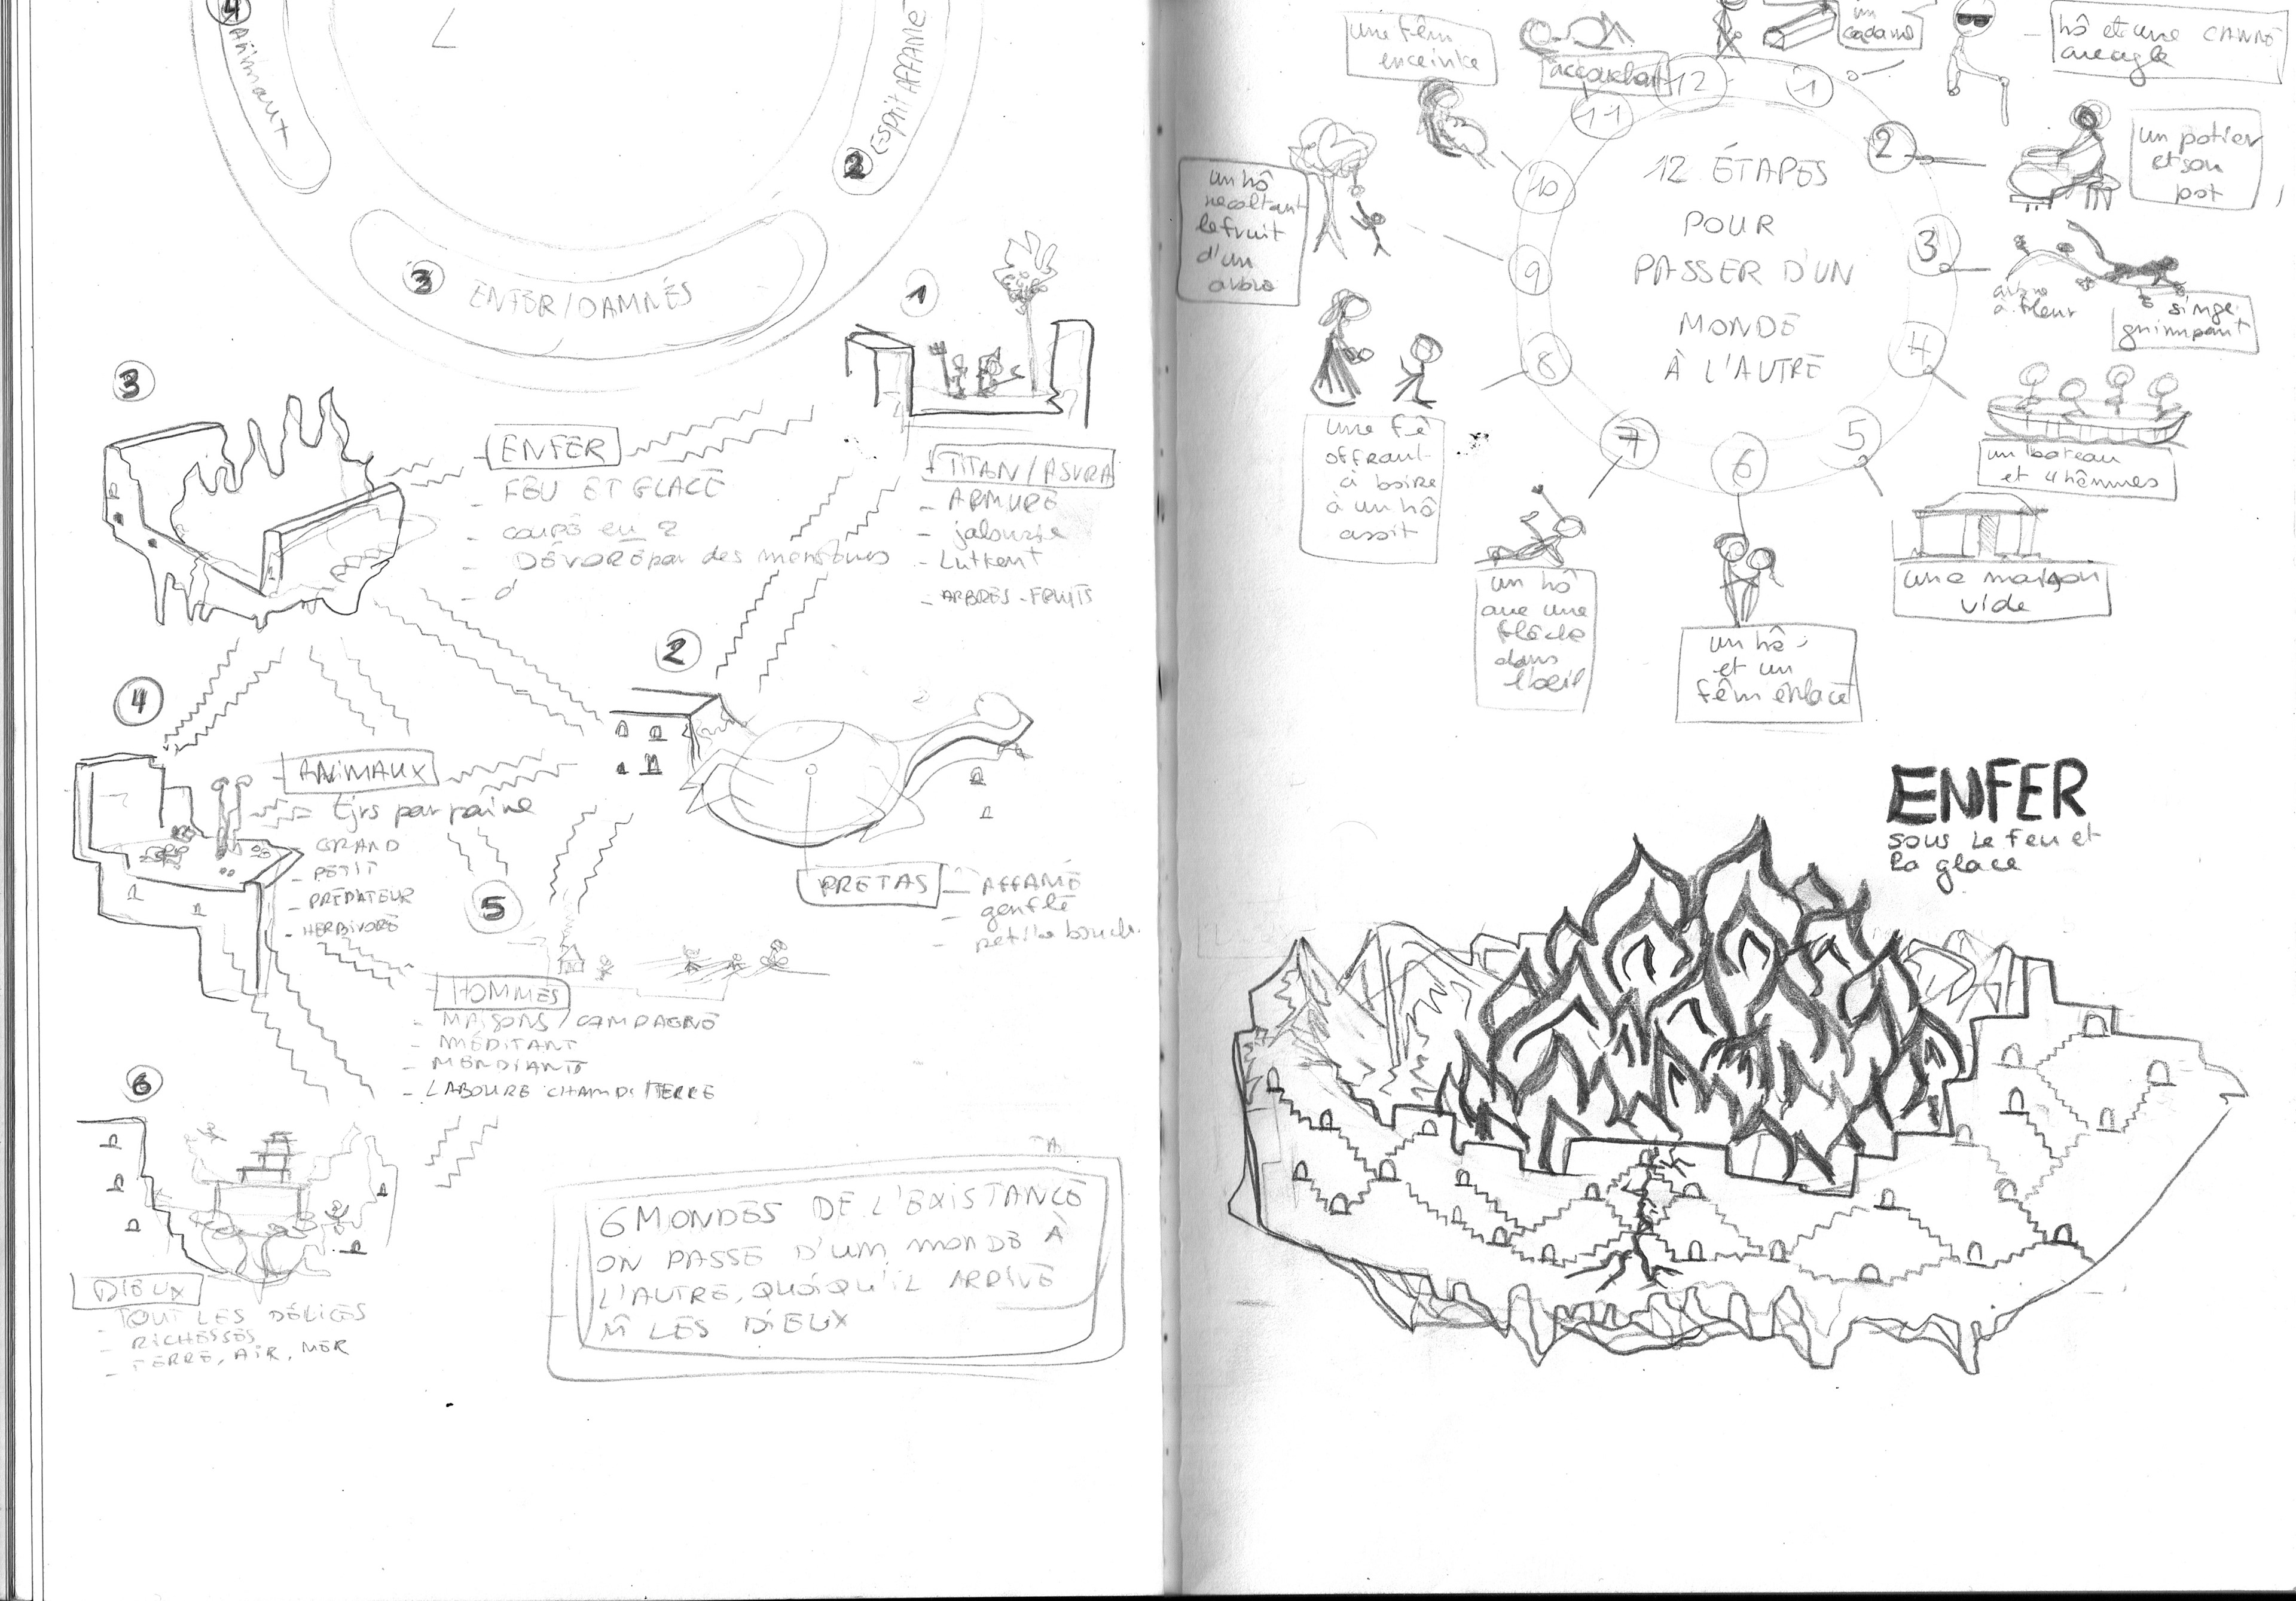 4
Animaux
2
Esprit AFFAMÉ
3
ENFER/DAMNÉS
1
3
ENFER
- FEU ET GLACE
- COUPÉ en 2
- DÉVORÉ par des monstres
- d'
TITAN/ASURA
- ARMURE
- jalousie
- Luttent
- ARBRES-FRUITS
2
4
ANIMAUX
= tjrs par paire
- GRAND
- PETIT
- PRÉDATEUR
- HERBIVORE
PRETAS
- AFFAMÉ
- gonflé
- petite bouch.
5
HOMMES
- MAISONS / CAMPAGNE
- MÉDITANT
- MENDIANTS
- LABOURE CHAMP/TERRE
6
DIEUX
- TOUT LES DÉLICES
- RICHESSES
- TERRE, AIR, MER
6 MONDES DE L'EXISTANCE
ON PASSE D'UM MONDE À
L'AUTRE, QUOIQU'IL ARRIVE
M̂ LES DIEUX
une fêm
enceinte
accouchant
un
cadavre
- hô et une CANNE
aveugle
12
1
11
2
10
3
9
4
8
5
7
6
12 ÉTAPES
POUR
PASSER D'UN
MONDE
À L'AUTRE
un potier
et son
pot
un hô
récoltant
le fruit
d'un
arbre
arbre
à fleur
singe
grimpant
un bateau
et 4 hômmes
une fê
offrant
à boire
à un hô
assit
une maison
vide
un hô
ave une
flèche
dans
l'œil
un hô
et un
fêm enlacé
ENFER
sous le feu et
la glace